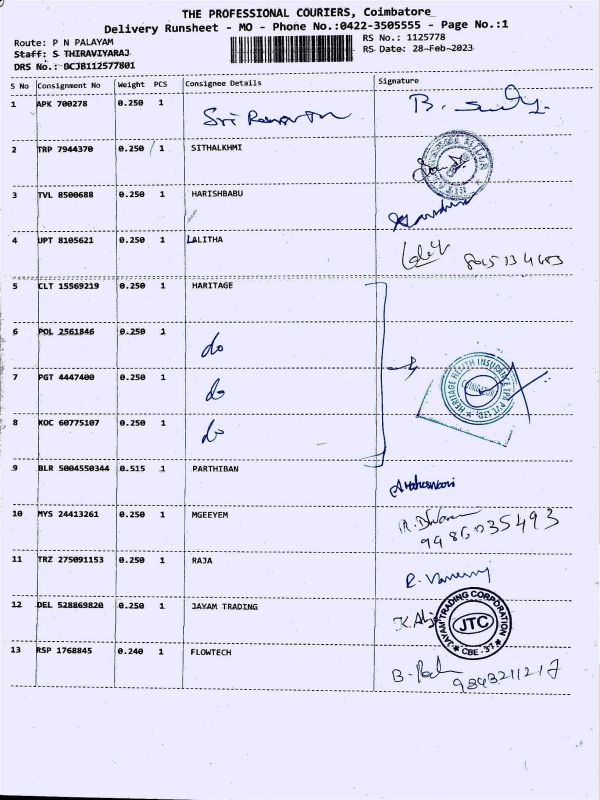 THE PROFESSIONAL COURIERS, Coimbatore
Delivery Runsheet - MO - Phone No.:0422-3505555 - Page No.:1
Route: P N PALAYAM
RS No.: 1125778
Staff: S THIRAVIYARAJ
RS Date: 28-Feb-2023
DRS No.: BCJB112577801
S No Consignment No Weight PCS Consignee Details Signature
1 APK 700278 0.250 1 Sri B.
2 TRP 7944370 0.250 1 SITHALKHMI
3 TVL 8500688 0.250 1 HARISHBABU
4 UPT 8105621 0.250 1 LALITHA
5 CLT 15569219 0.250 1 HARITAGE
6 POL 2561846 0.250 1 do
7 PGT 4447400 0.250 1 do
HERITAGE HEALTH INSURANCE TPA PVT LTD.
8 KOC 60775107 0.250 1 do
9 BLR 5004550344 0.515 1 PARTHIBAN
10 MYS 24413261 0.250 1 MGEEYEM
11 TRZ 275091153 0.250 1 RAJA
12 DEL 528869820 0.250 1 JAYAM TRADING
JAYAM TRADING CORPORATION
JTC
CBE - 37
13 RSP 1768845 0.240 1 FLOWTECH
9843211217